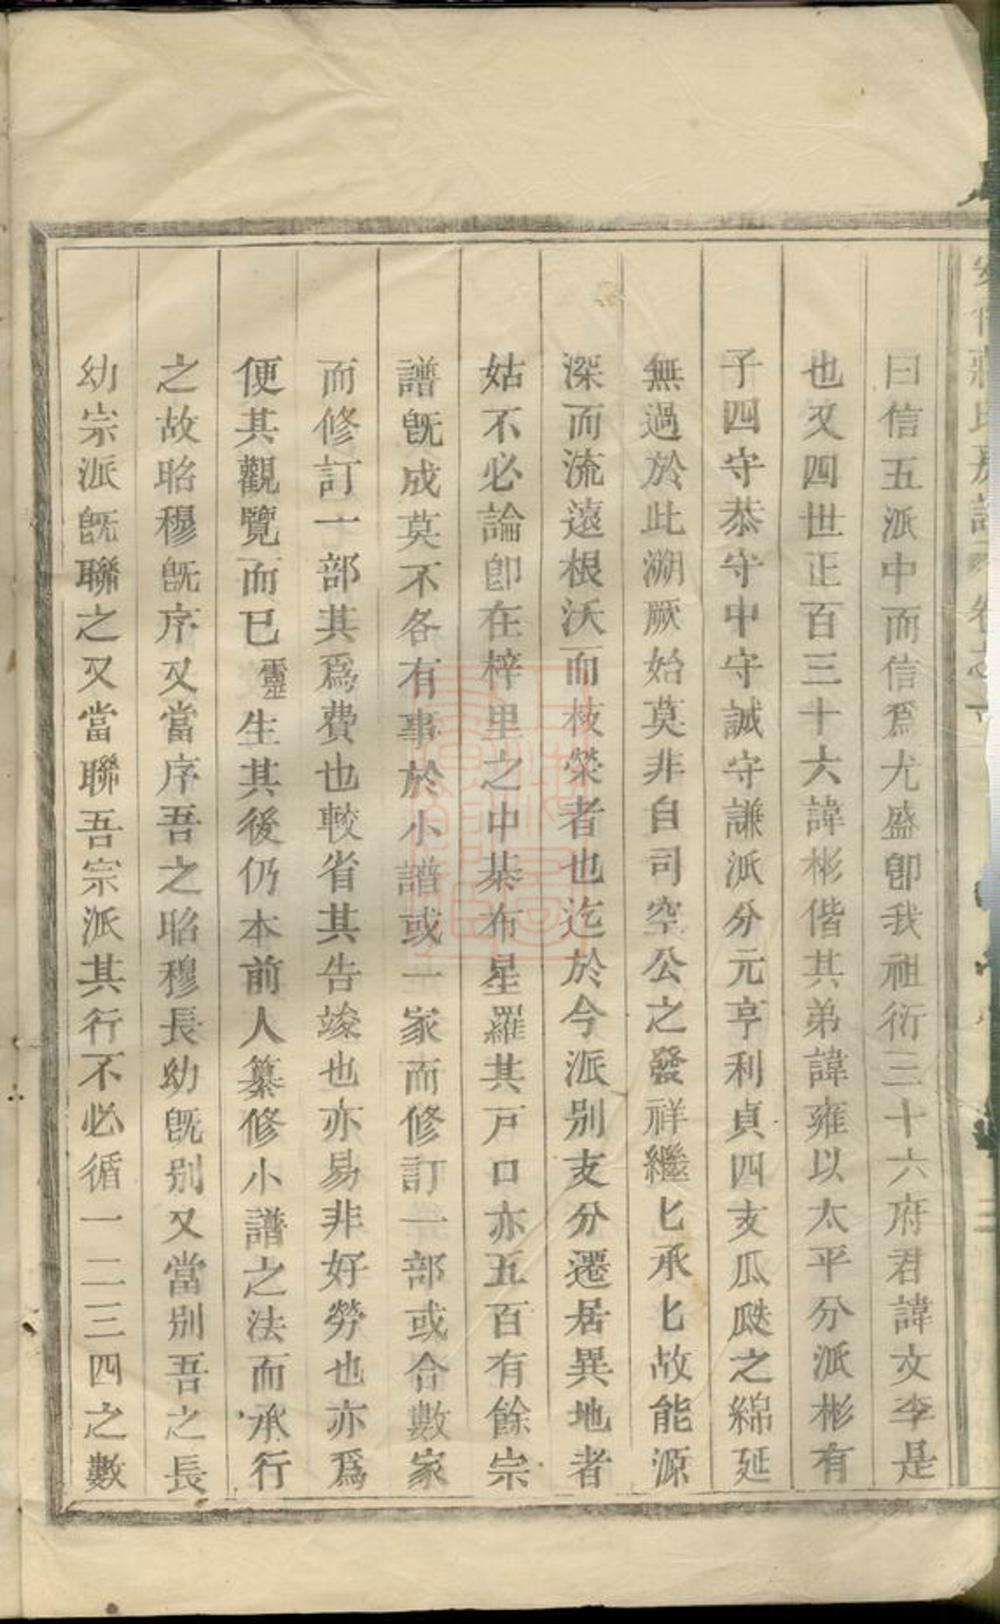 曰信五派中而信爲尤盛卽我祖衍三十六府君諱文李是
也又四世正百三十六諱彬偕其弟諱雍以太平分派彬有
子四守恭守中守誠守謙派分元亨利貞四支瓜瓞之綿延
無過於此溯厥始莫非自司空公之發祥繼匕承匕故能源
深而流遠根沃而枝榮者也迄於今派别支分遷居異地者
姑不必論卽在梓里之中棊布星羅其戸口亦五百有餘宗
譜旣成莫不各有事於小譜或一家而修訂一部或合數家
而修訂一部其爲費也較省其告竣也亦易非好勞也亦爲
便其觀覽而已靈生其後仍本前人纂修小譜之法而承行
之故昭穆旣序又當序吾之昭穆長幼旣别又當别吾之長
幼宗派旣聯之又當聯吾宗派其行不必循一二三四之數